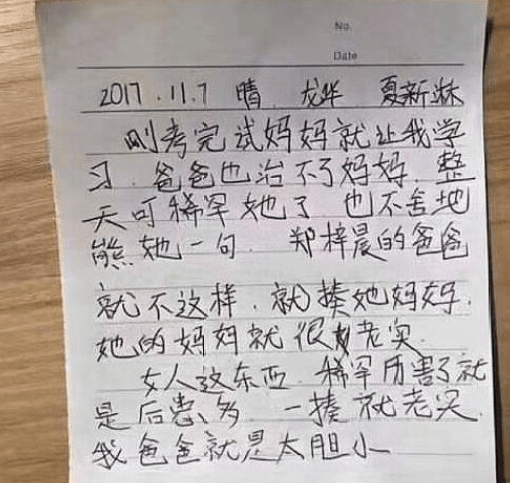 No.
Date
2017.11.7 晴 龙华 夏新淋
刚考完试妈妈就让我学
习.爸爸也治不了妈妈.整
天可稀罕她了.也不舍地
熊她一句.郑梓晨的爸爸
就不这样.就揍她妈妈.
她的妈妈就很老实.
女人这东西.稀罕厉害了就
是后患多.一揍就老实.
我爸爸就是太胆小